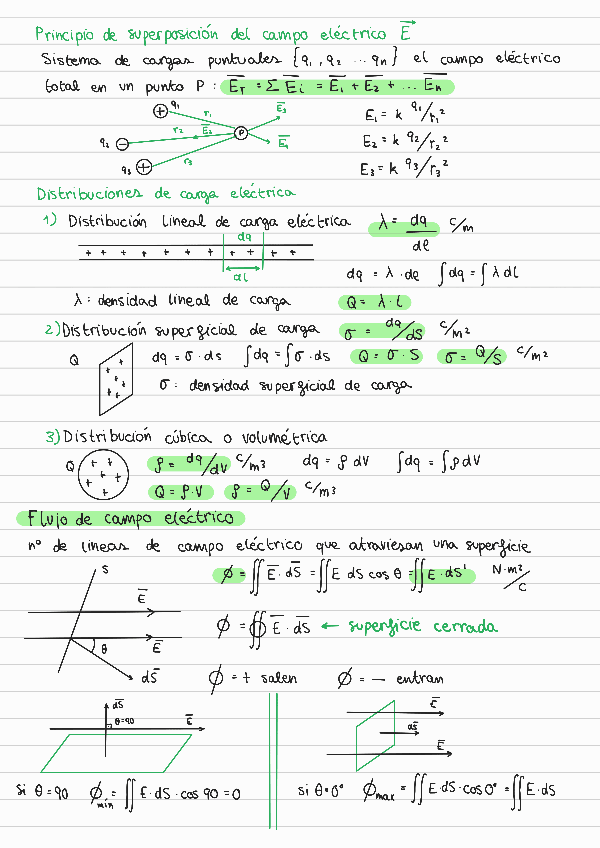 Principio de superposición del campo eléctrico E⃗
Sistema de cargas puntuales {q₁, q₂ ... qₙ} el campo eléctrico
total en un punto P: E̅ᴛ = Σ E̅ᵢ = E̅₁ + E̅₂ + ... E̅ₙ
q₁ r₁ E̅₃ E₁ = k q₁/r₁²
q₂ r₂ E̅₂ P E̅₁ E₂ = k q₂/r₂²
q₃ r₃ E₃ = k q₃/r₃²
Distribuciones de carga eléctrica
1) Distribución lineal de carga eléctrica λ = dq/dl C/m
dq
+ + + + + + + + + + +
dl dq = λ · dl ∫dq = ∫λ dl
λ: densidad lineal de carga Q = λ · L
2) Distribución superficial de carga σ = dq/dS C/m²
Q dq = σ · ds ∫dq = ∫σ · ds Q = σ · S σ = Q/S C/m²
σ: densidad superficial de carga
3) Distribución cúbica o volumétrica
Q ρ = dq/dV C/m³ dq = ρ dV ∫dq = ∫ρ dV
Q = ρ · V ρ = Q/V C/m³
Flujo de campo eléctrico
nº de líneas de campo eléctrico que atraviesan una superficie
S E̅ ϕ = ∬ E̅ · dS̅ = ∬ E dS cos θ = ∬ E · dS' N·m²/C
θ E̅ ϕ = ∯ E̅ · dS̅ ← superficie cerrada
dS̅ ϕ = + salen ϕ = − entran
dS̅ θ=90 E̅
E̅ dS̅ E̅
si θ = 90 ϕmín = ∬ E · dS · cos 90 = 0
si θ = 0° ϕmax = ∬ E · dS · cos 0° = ∬ E · dS